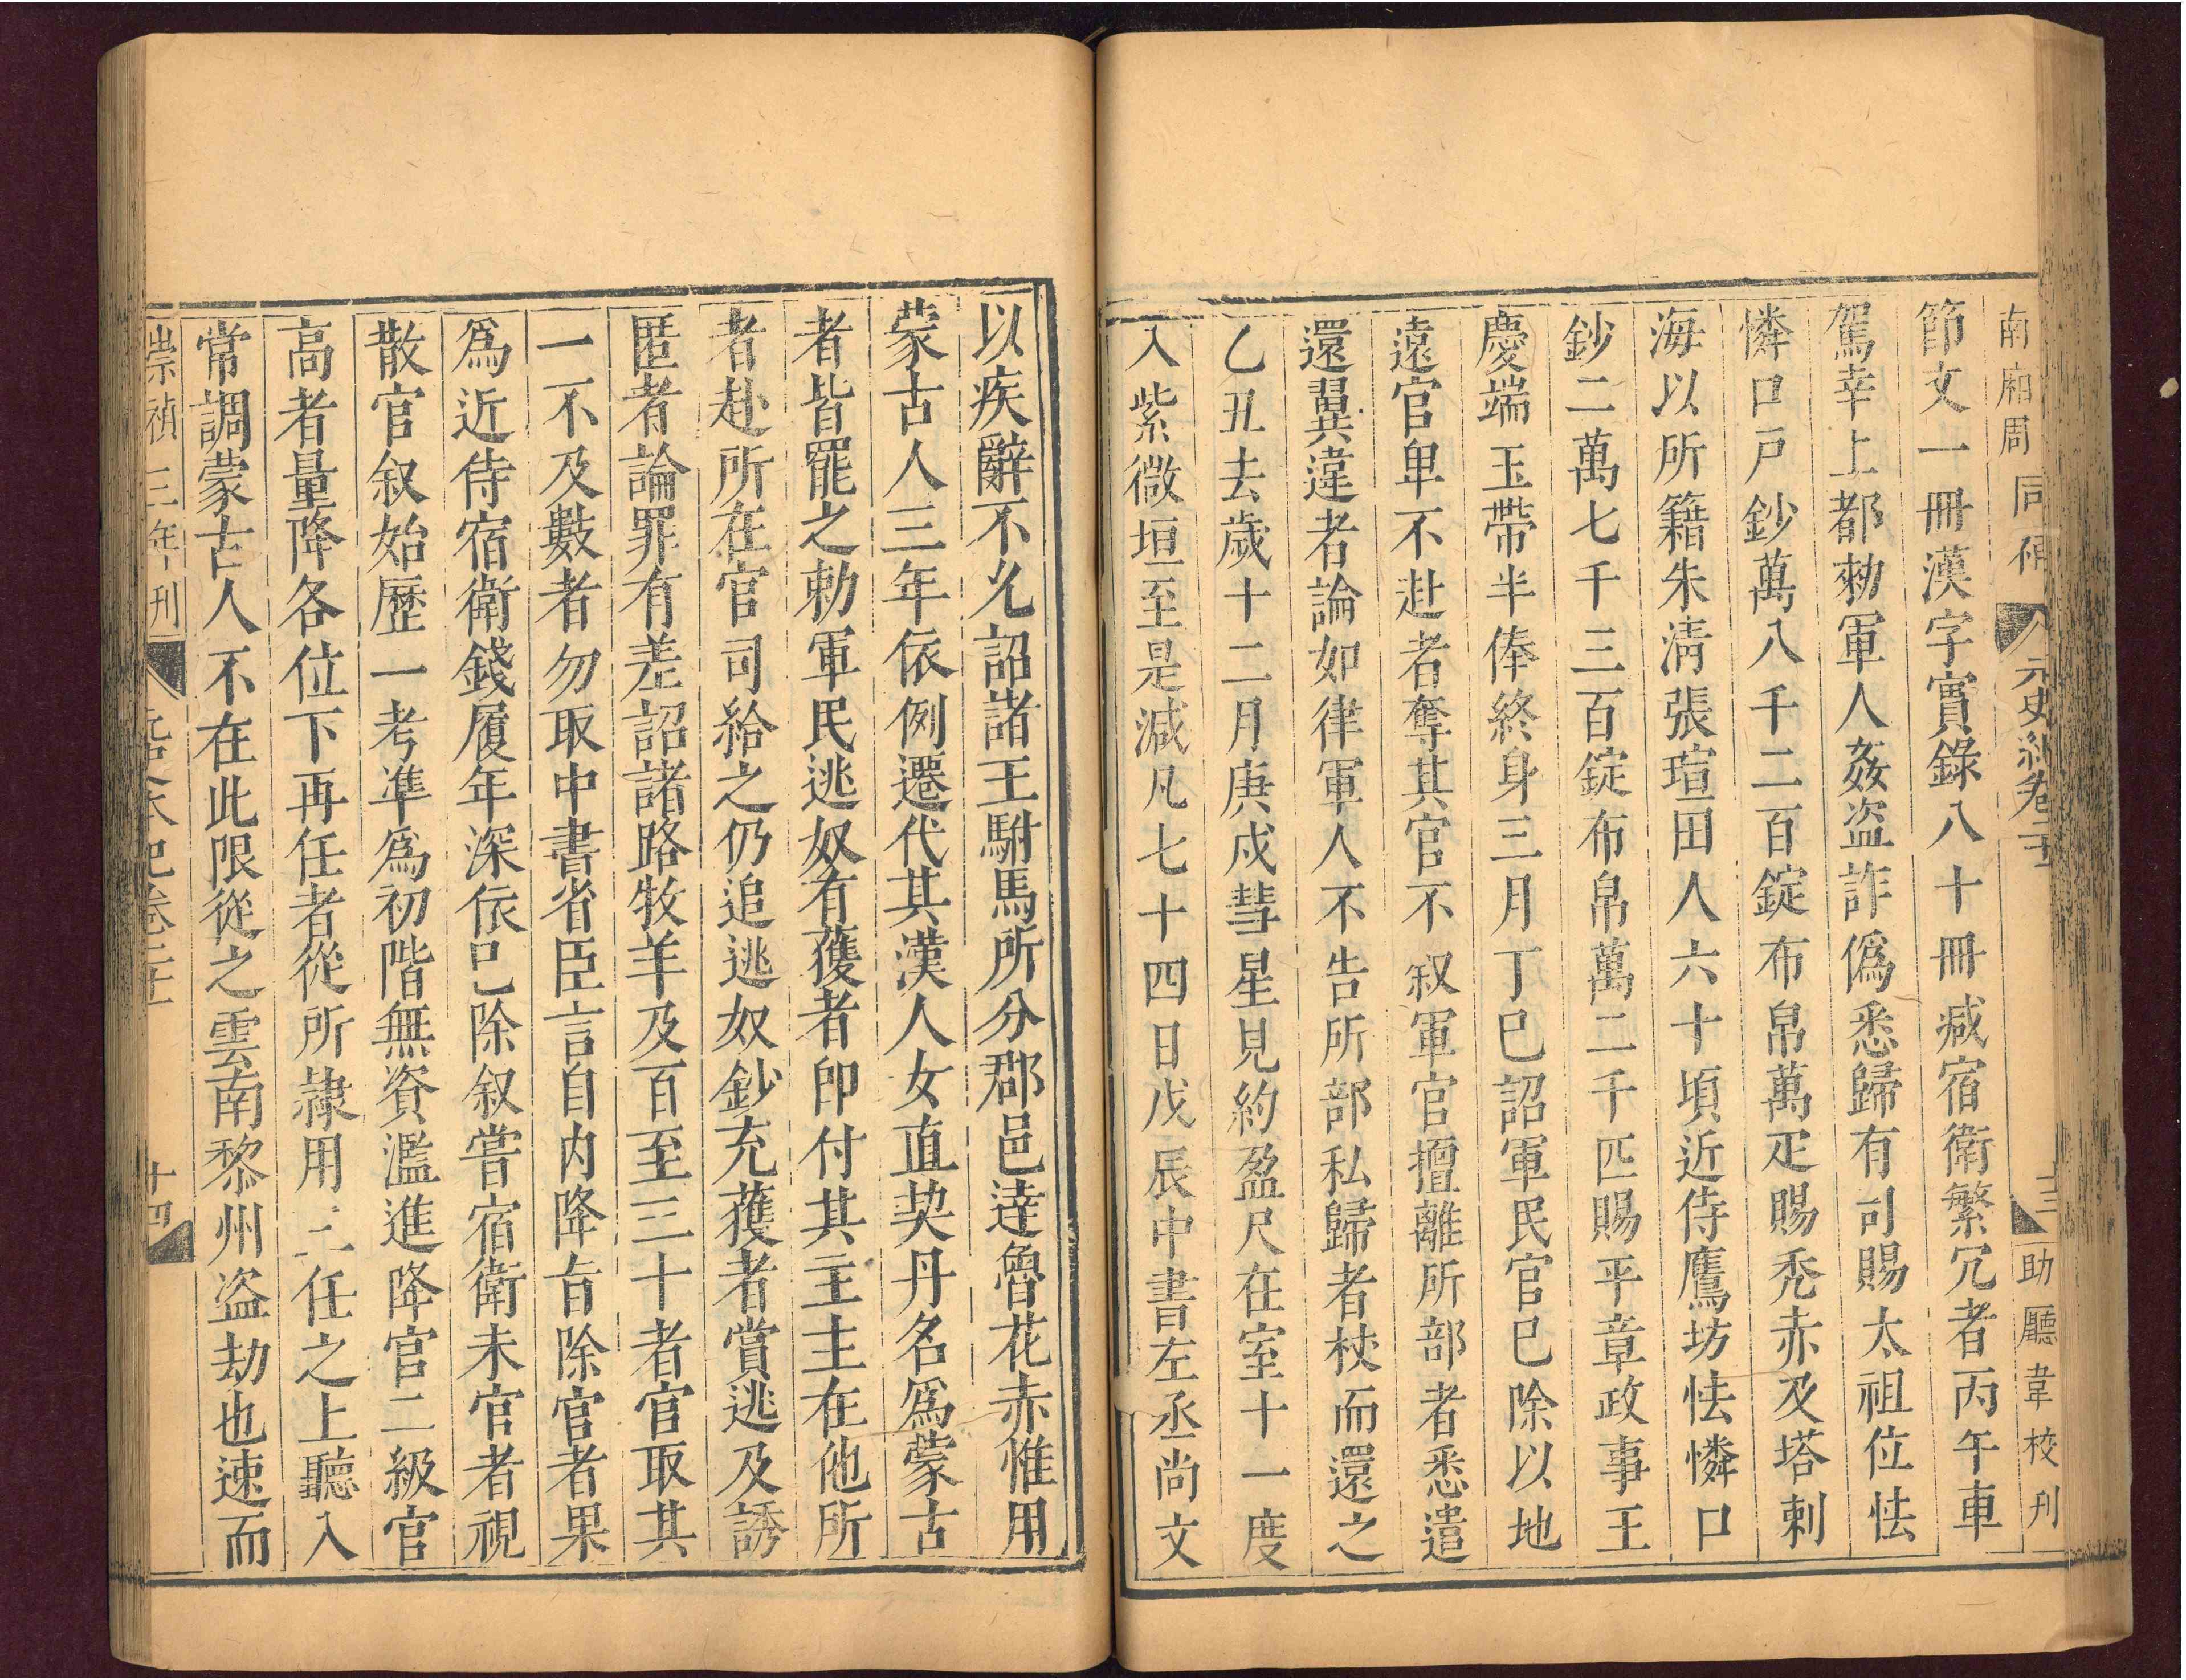 南廂周同
元史紀卷二十
十三
助廳韋校刊
節文一冊漢字實錄八十冊减宿衛繁冗者丙午車
駕幸上都勑軍人姦盗詐偽悉歸有司賜太祖位怯
憐口戸鈔萬八千二百錠布帛萬疋賜禿赤及塔剌
海以所籍朱清張瑄田人六十頃近侍鷹坊怯憐口
鈔二萬七千三百錠布帛萬二千匹賜平章政事王
慶端玉帶半俸終身三月丁巳詔軍民官巳除以地
遠官卑不赴者奪其官不叙軍官擅離所部者悉遣
還翼違者論如律軍人不告所部私歸者杖而還之
乙丑去歲十二月庚戍彗星見約盈尺在室十一度
入紫微垣至是滅凡七十四日戊辰中書左丞尚文
以疾辭不允詔諸王駙馬所分郡邑達魯花赤惟用
蒙古人三年依例遷代其漢人女直契丹名爲蒙古
者皆罷之勑軍民逃奴有獲者即付其主主在他所
者赴所在官司給之仍追逃奴鈔充獲者賞逃及誘
匿者論罪有差詔諸路牧羊及百至三十者官取其
一不及數者勿取中書省臣言自内降旨除官者果
爲近侍宿衛錢履年深依巳除叙嘗宿衛未官者視
散官叙始歷一考準爲初階無資濫進降官二級官
高者量降各位下再任者從所隷用三任之上聽入
常調蒙古人不在此限從之雲南黎州盗劫也速而
崇禎三年刊
元史本紀卷二十
十四